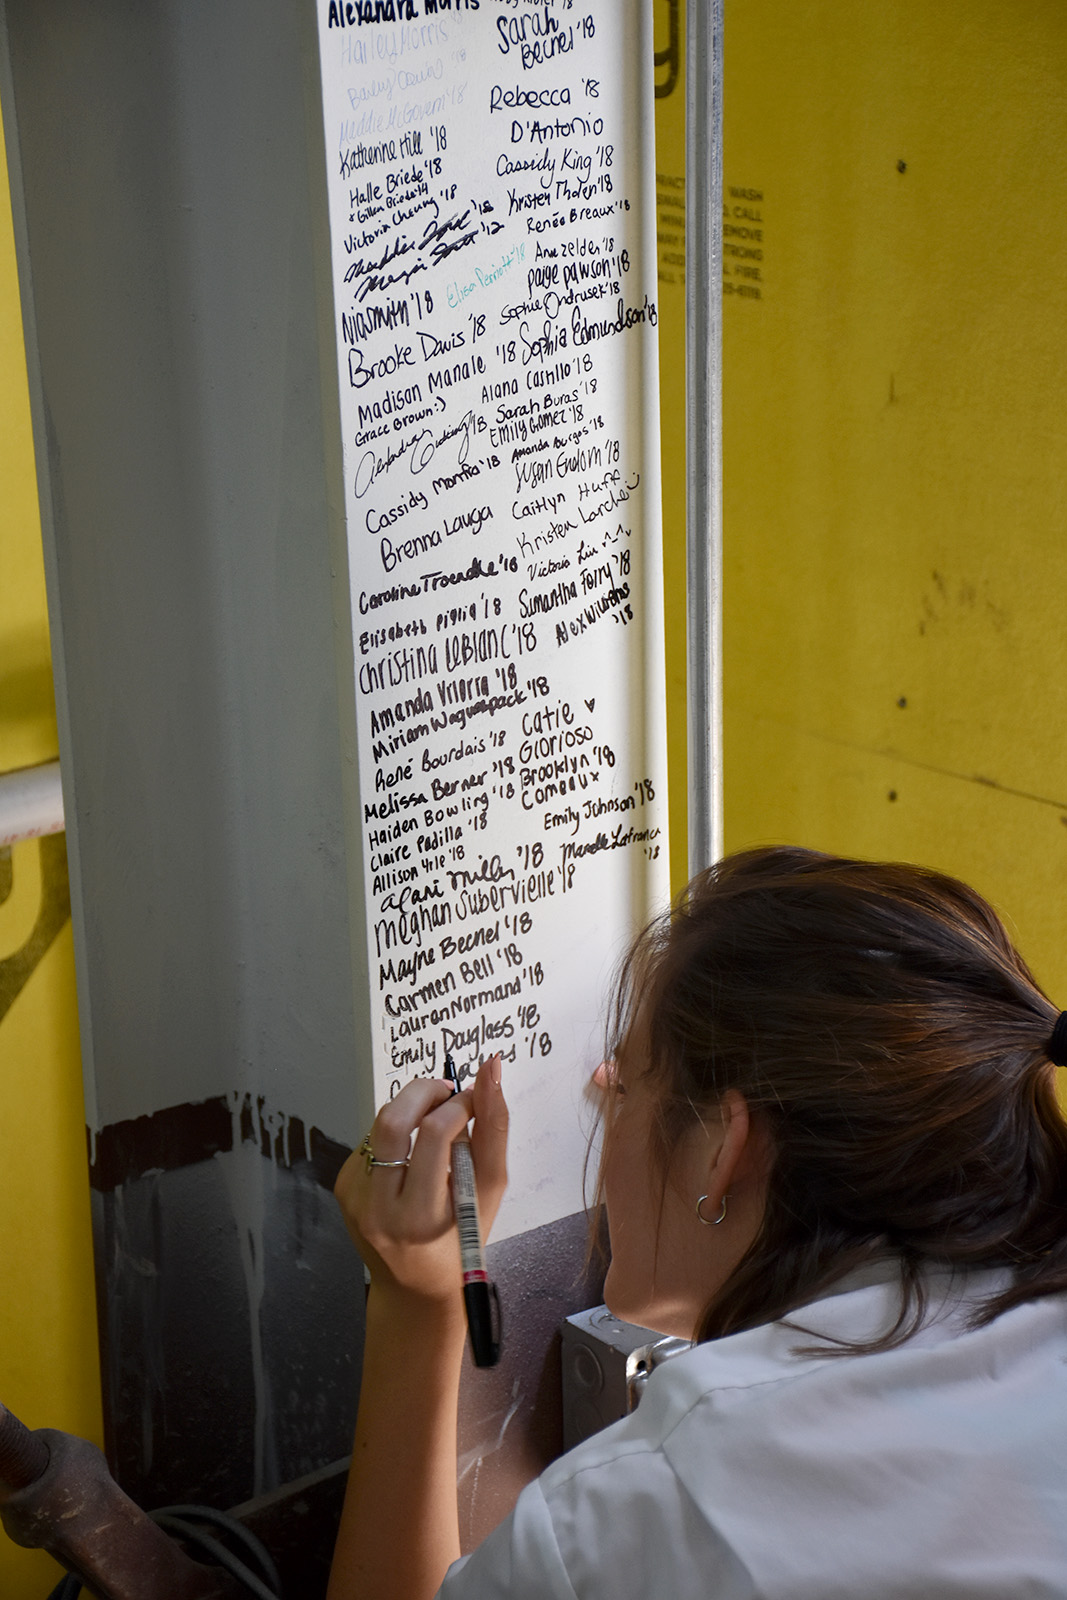 Alexandra Morris
Hailey Morris '18
'18
Maddie McGovern '18
Katherine Hill '18
Halle Briede '18
+ Gillian Briede '14
Victoria Cheung '18
'18
'12
Nia Smith '18
Elise Perriott '18
Brooke Davis '18
Madison Manale '18
Grace Brown :)
'18
Cassidy Monfra '18
Brenna Lauga
Caroline Troendle '18
Elisabeth Piglia '18
Christina LeBlanc '18
Amanda Vriorra '18
Miriam Waguespack '18
René Bourdais '18
Melissa Berner '18
Haiden Bowling '18
Claire Padilla '18
Allison Yrle '18
Alani Milley '18
Meghan Subervielle '18
Mayne Becnel '18
Carmen Bell '18
Lauren Normand '18
Emily Douglass '18
'18
'18
Sarah
Becnel '18
Rebecca '18
D'Antonio
Cassidy King '18
Kristen Tholen '18
Renée Breaux '18
Anne Zelden '18
Paige Pawson '18
Sophie Ondrusek '18
Sophia Edmundson '18
Alana Castillo '18
Sarah Buras '18
Emily Gomez '18
Amanda Burgos '18
Susan Enolom '18
Caitlyn Huff
Kristen Larche :)
Victoria Liu ^-^
Samantha Forry '18
Alex Williams
'18
Catie ♥
Glorioso
Brooklyn '18
Comeaux
Emily Johnson '18
Marelle Lafranca
'18
WASH
CALL
REMOVE
STRONG
FIRE,